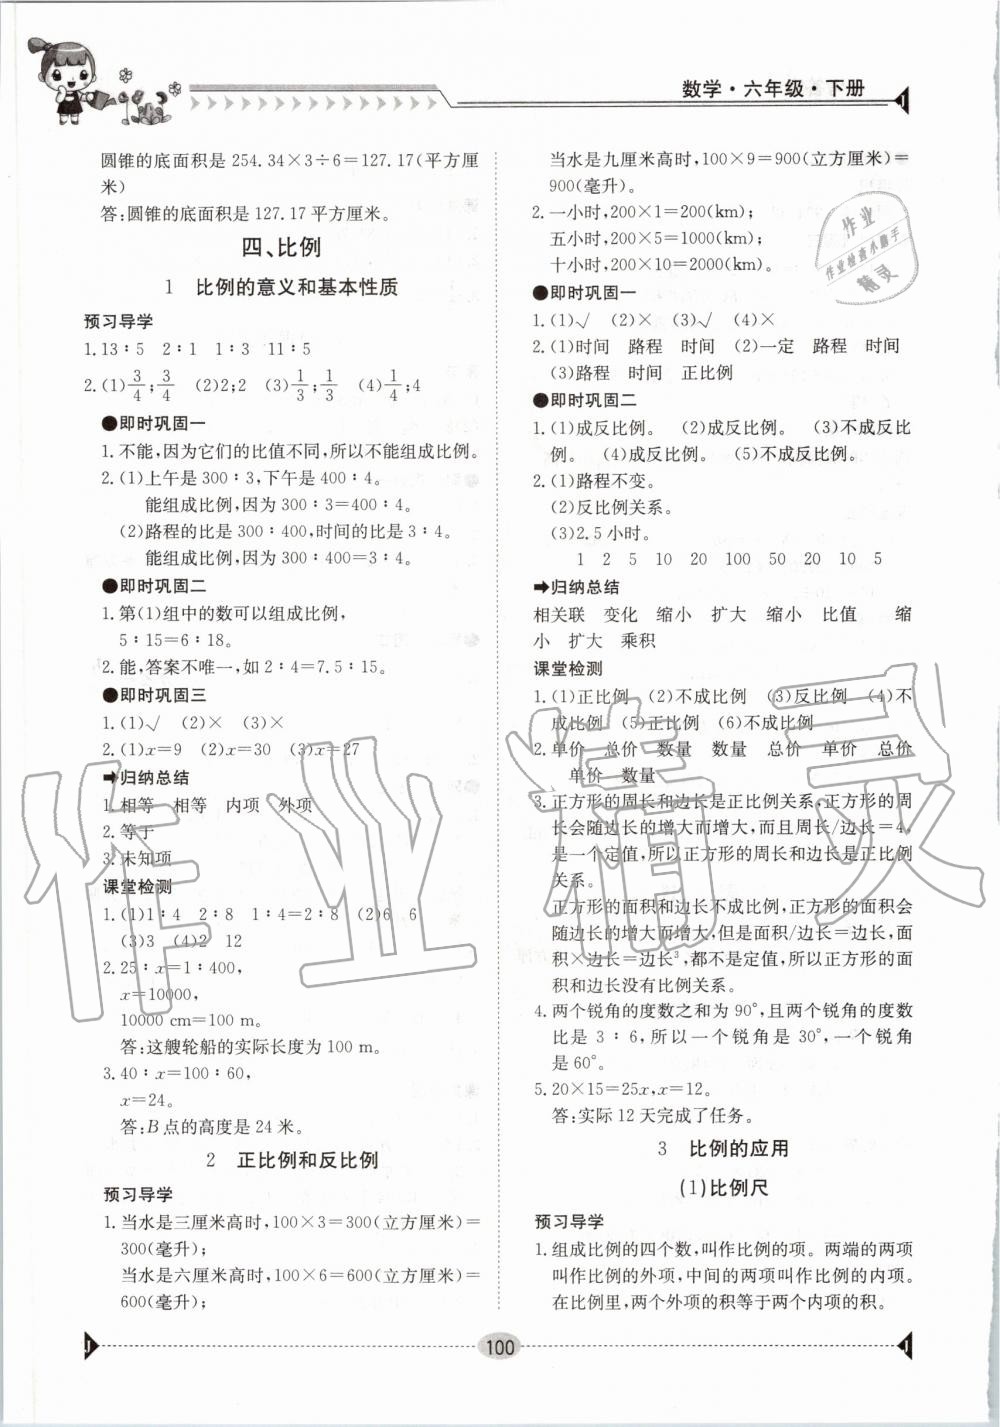 数学·六年级·下册
圆锥的底面积是 254.34×3÷6=127.17(平方厘
米)
答:圆锥的底面积是 127.17 平方厘米。
四、比例
1 比例的意义和基本性质
预习导学
1.13∶5 2∶1 1∶3 11∶5
2.(1)3/4;3/4 (2)2;2 (3)1/3;1/3 (4)1/4;4
●即时巩固一
1.不能,因为它们的比值不同,所以不能组成比例。
2.(1)上午是 300∶3,下午是 400∶4。
能组成比例,因为 300∶3=400∶4。
(2)路程的比是 300∶400,时间的比是 3∶4。
能组成比例,因为 300∶400=3∶4。
●即时巩固二
1.第(1)组中的数可以组成比例,
5∶15=6∶18。
2.能,答案不唯一,如 2∶4=7.5∶15。
●即时巩固三
1.(1)√ (2)× (3)×
2.(1)x=9 (2)x=30 (3)x=27
➡归纳总结
1.相等 相等 内项 外项
2.等于
3.未知项
课堂检测
1.(1)1∶4 2∶8 1∶4=2∶8 (2)6 6
(3)3 (4)2 12
2.25∶x=1∶400,
x=10000,
10000 cm=100 m。
答:这艘轮船的实际长度为 100 m。
3.40∶x=100∶60,
x=24。
答:B 点的高度是 24 米。
2 正比例和反比例
预习导学
1.当水是三厘米高时,100×3=300(立方厘米)=
300(毫升);
当水是六厘米高时,100×6=600(立方厘米)=
600(毫升);
当水是九厘米高时,100×9=900(立方厘米)=
900(毫升)。
2.一小时,200×1=200(km);
五小时,200×5=1000(km);
十小时,200×10=2000(km)。
●即时巩固一
1.(1)√ (2)× (3)√ (4)×
2.(1)时间 路程 时间 (2)一定 路程 时间
(3)路程 时间 正比例
●即时巩固二
1.(1)成反比例。 (2)成反比例。 (3)不成反比
例。 (4)成反比例。 (5)不成反比例。
2.(1)路程不变。
(2)反比例关系。
(3)2.5 小时。
1 2 5 10 20 100 50 20 10 5
➡归纳总结
相关联 变化 缩小 扩大 缩小 比值 缩
小 扩大 乘积
课堂检测
1.(1)正比例 (2)不成比例 (3)反比例 (4)不
成比例 (5)正比例 (6)不成比例
2.单价 总价 数量 数量 总价 单价 总价
单价 数量
3.正方形的周长和边长是正比例关系,正方形的周
长会随边长的增大而增大,而且周长/边长=4,
是一个定值,所以正方形的周长和边长是正比例
关系。
正方形的面积和边长不成比例,正方形的面积会
随边长的增大而增大,但是面积/边长=边长,面
积×边长=边长³,都不是定值,所以正方形的面
积和边长没有比例关系。
4.两个锐角的度数之和为 90°,且两个锐角的度数
比是 3∶6,所以一个锐角是 30°,一个锐角
是 60°。
5.20×15=25x,x=12。
答:实际 12 天完成了任务。
3 比例的应用
(1)比例尺
预习导学
1.组成比例的四个数,叫作比例的项。两端的两项
叫作比例的外项,中间的两项叫作比例的内项。
在比例里,两个外项的积等于两个内项的积。
J 100 J
作业精灵
作业
作业检查小助手
精灵